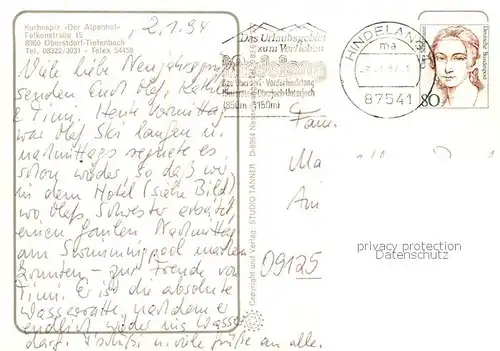 Kurhotel »Der Alpenhof«
Falkenstraße 15
8980 Oberstdorf-Tiefenbach
Tel. 08322/3031 - Telex 54450
2.1.94
Viele liebe Neujahrsgrüße
senden Euch Olaf,
+ Timi. Heute Vormittag
war Olaf Ski laufen u.
nachmittags regnete es
schon wieder, so daß wir
in dem Hotel (siehe Bild)
wo Olafs Schwester arbeitet
einen faulen Nachmittag
am Swimmingpool machen
konnten - zur Freude von
Timi. Er ist die absolute
Wasserratte, nachdem er
endlich wieder ins Wasser
darf. Tschüß u. viele Grüße an alle.
Copyright und Verlag: STUDIO TANNER
Das Urlaubsgebiet
zum Verlieben
Hindelang
850m - 1150m
HINDELANG
ma
87541
80
Deutsche Bundespost
Fam.
09125
privacy protection
Datenschutz